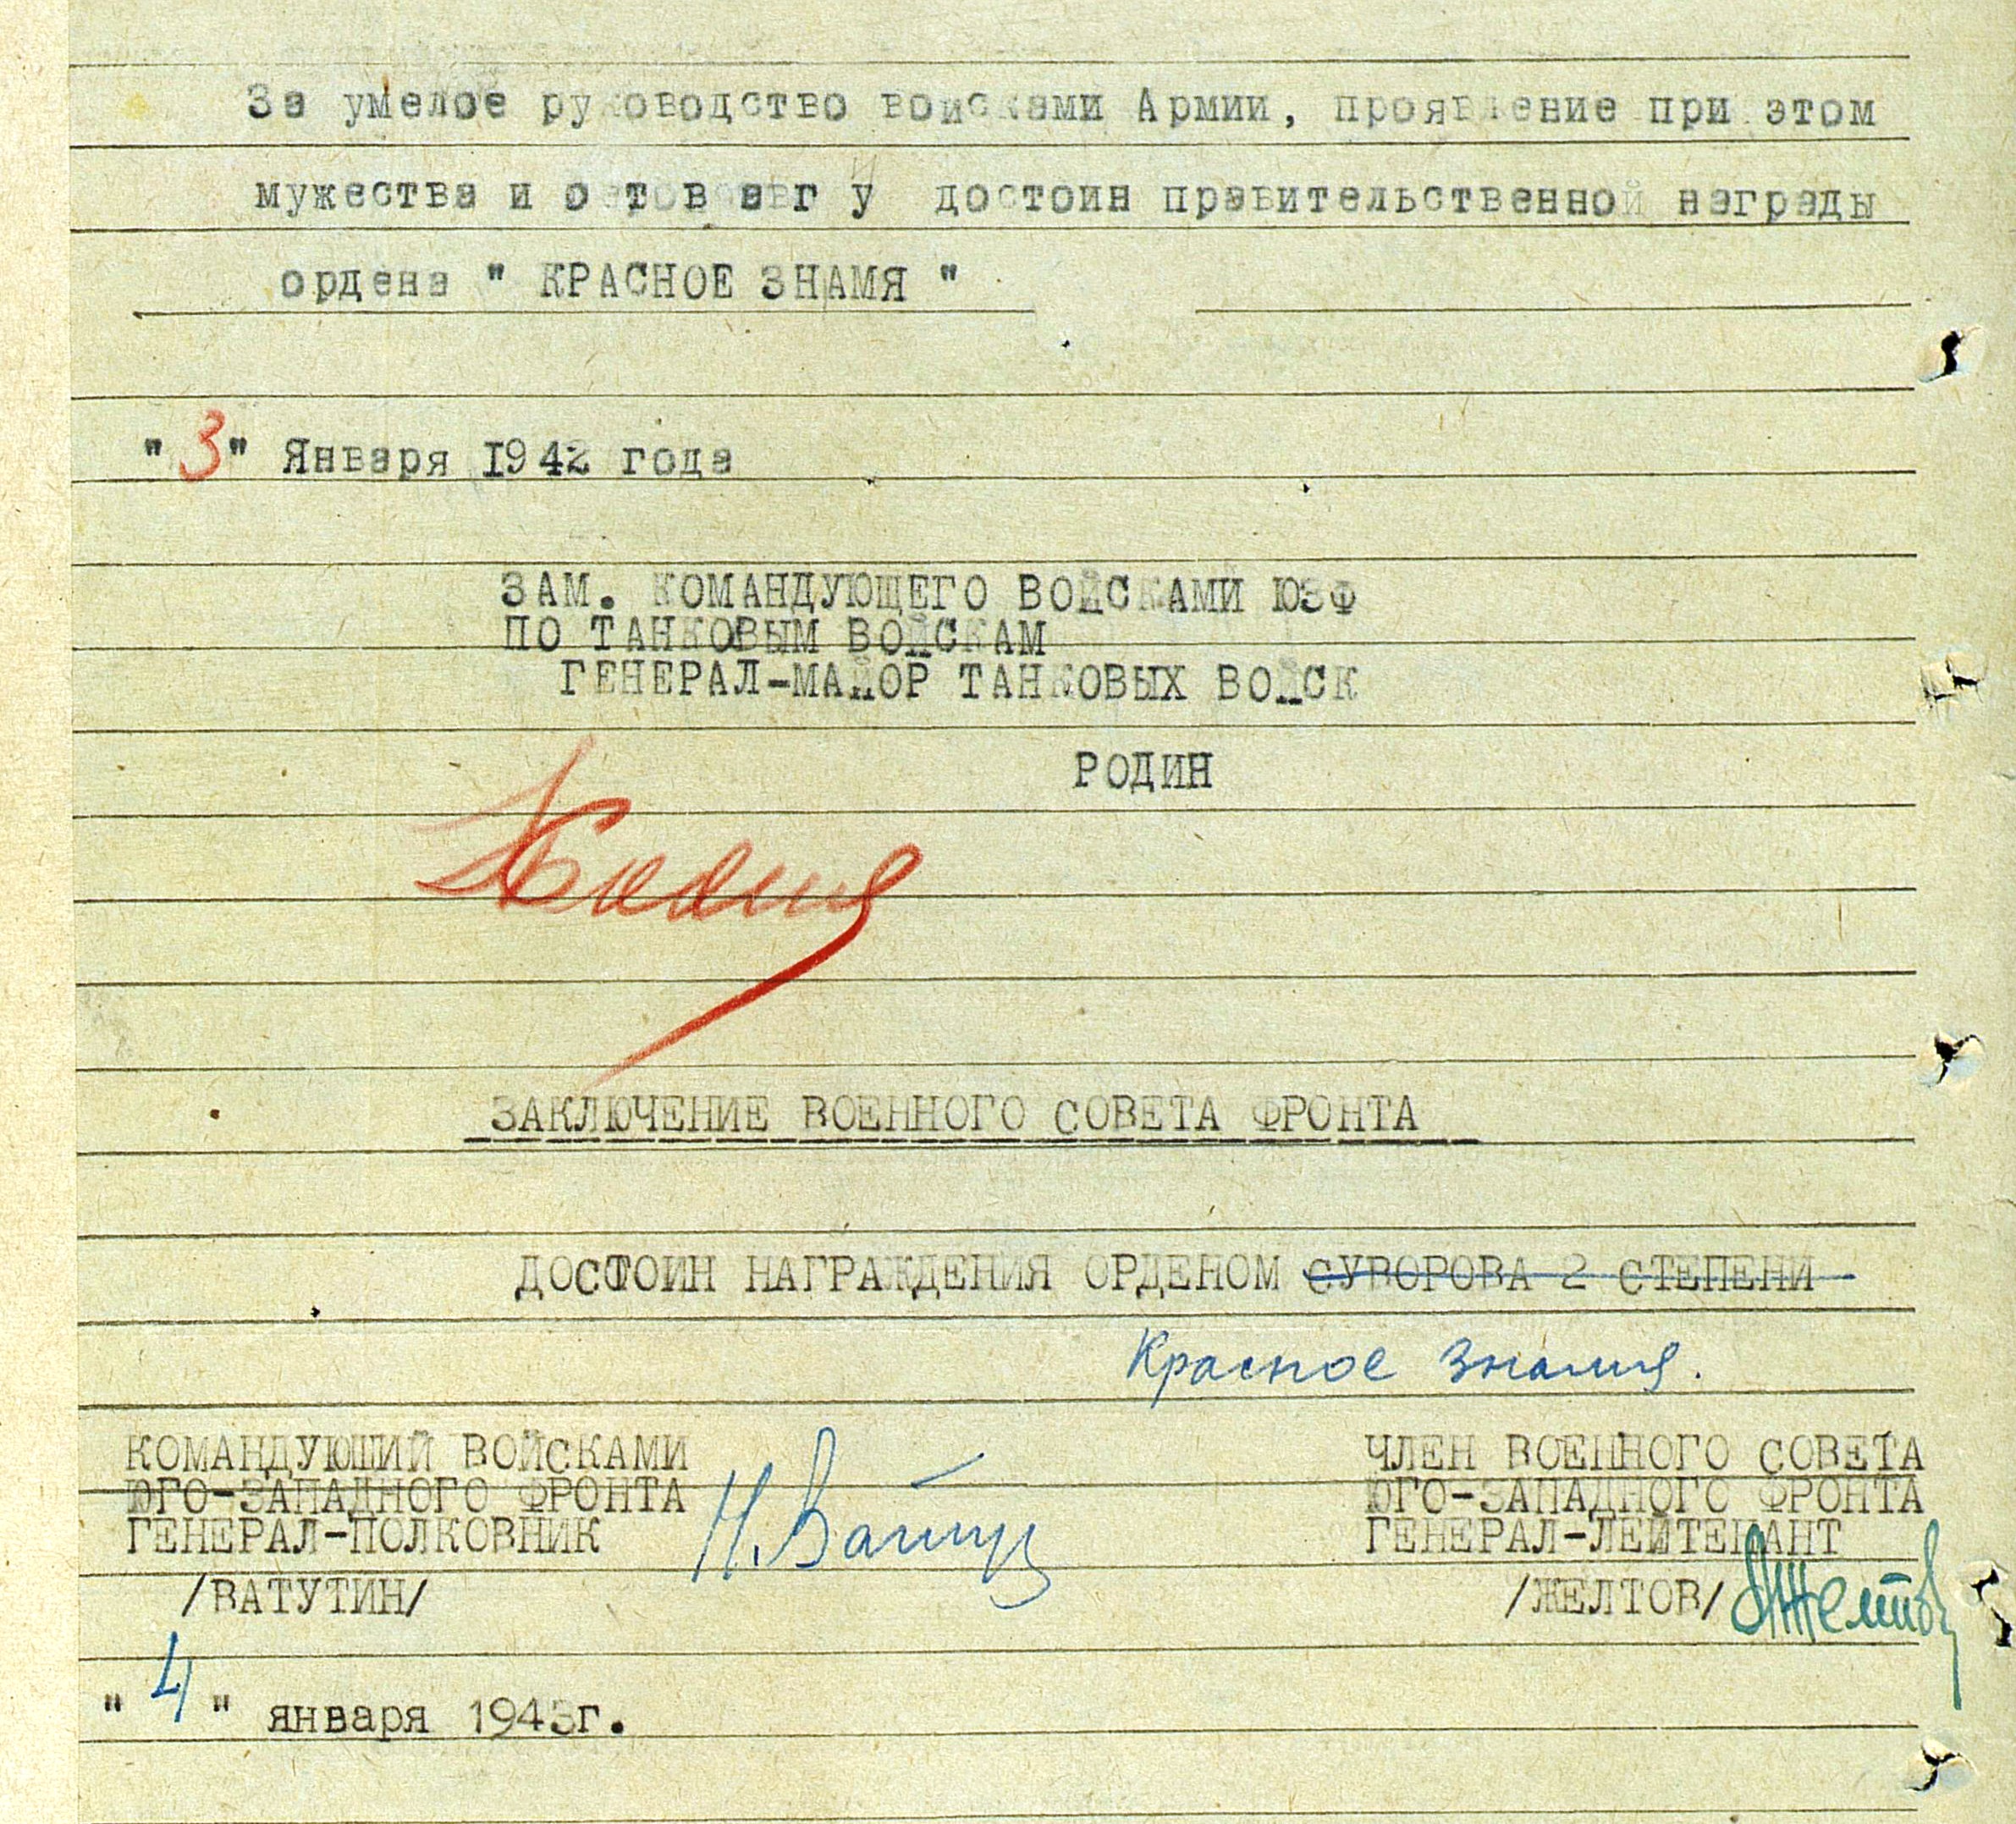 За умелое руководство войсками Армии, проявление при этом
мужества и достоин правительственной награды
ордена " КРАСНОЕ ЗНАМЯ "
"3" Января 1942 года
ЗАМ. КОМАНДУЮЩЕГО ВОЙСКАМИ ЮЗФ
ПО ТАНКОВЫМ ВОЙСКАМ
ГЕНЕРАЛ-МАЙОР ТАНКОВЫХ ВОЙСК
РОДИН
ЗАКЛЮЧЕНИЕ ВОЕННОГО СОВЕТА ФРОНТА
ДОСТОИН НАГРАЖДЕНИЯ ОРДЕНОМ СУВОРОВА 2 СТЕПЕНИ
Красное знамя.
КОМАНДУЮШИЙ ВОЙСКАМИ
ЮГО-ЗАПАДНОГО ФРОНТА
ГЕНЕРАЛ-ПОЛКОВНИК
/ВАТУТИН/
Н. Ватут
ЧЛЕН ВОЕННОГО СОВЕТА
ЮГО-ЗАПАДНОГО ФРОНТА
ГЕНЕРАЛ-ЛЕЙТЕНАНТ
/ЖЕЛТОВ/ АЖелтов
"4" января 1943г.